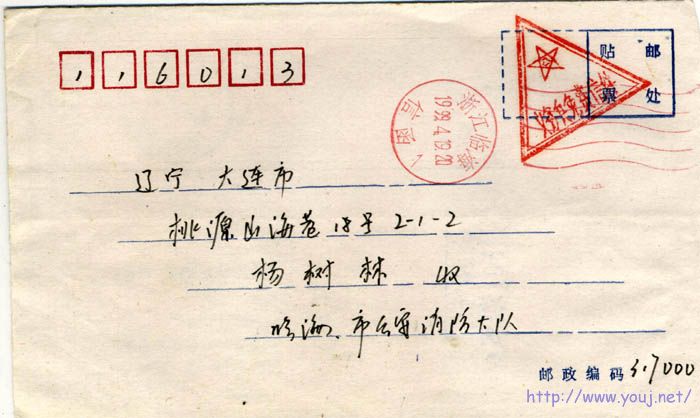 116013
贴 邮
票 处
义务兵免费信件
浙江临海
1999.4.12.20
信函
辽宁 大连市
桃源山海巷18号2-1-2
杨树林 收
临海市公安消防大队
邮政编码 317000
http://www.youj.net/